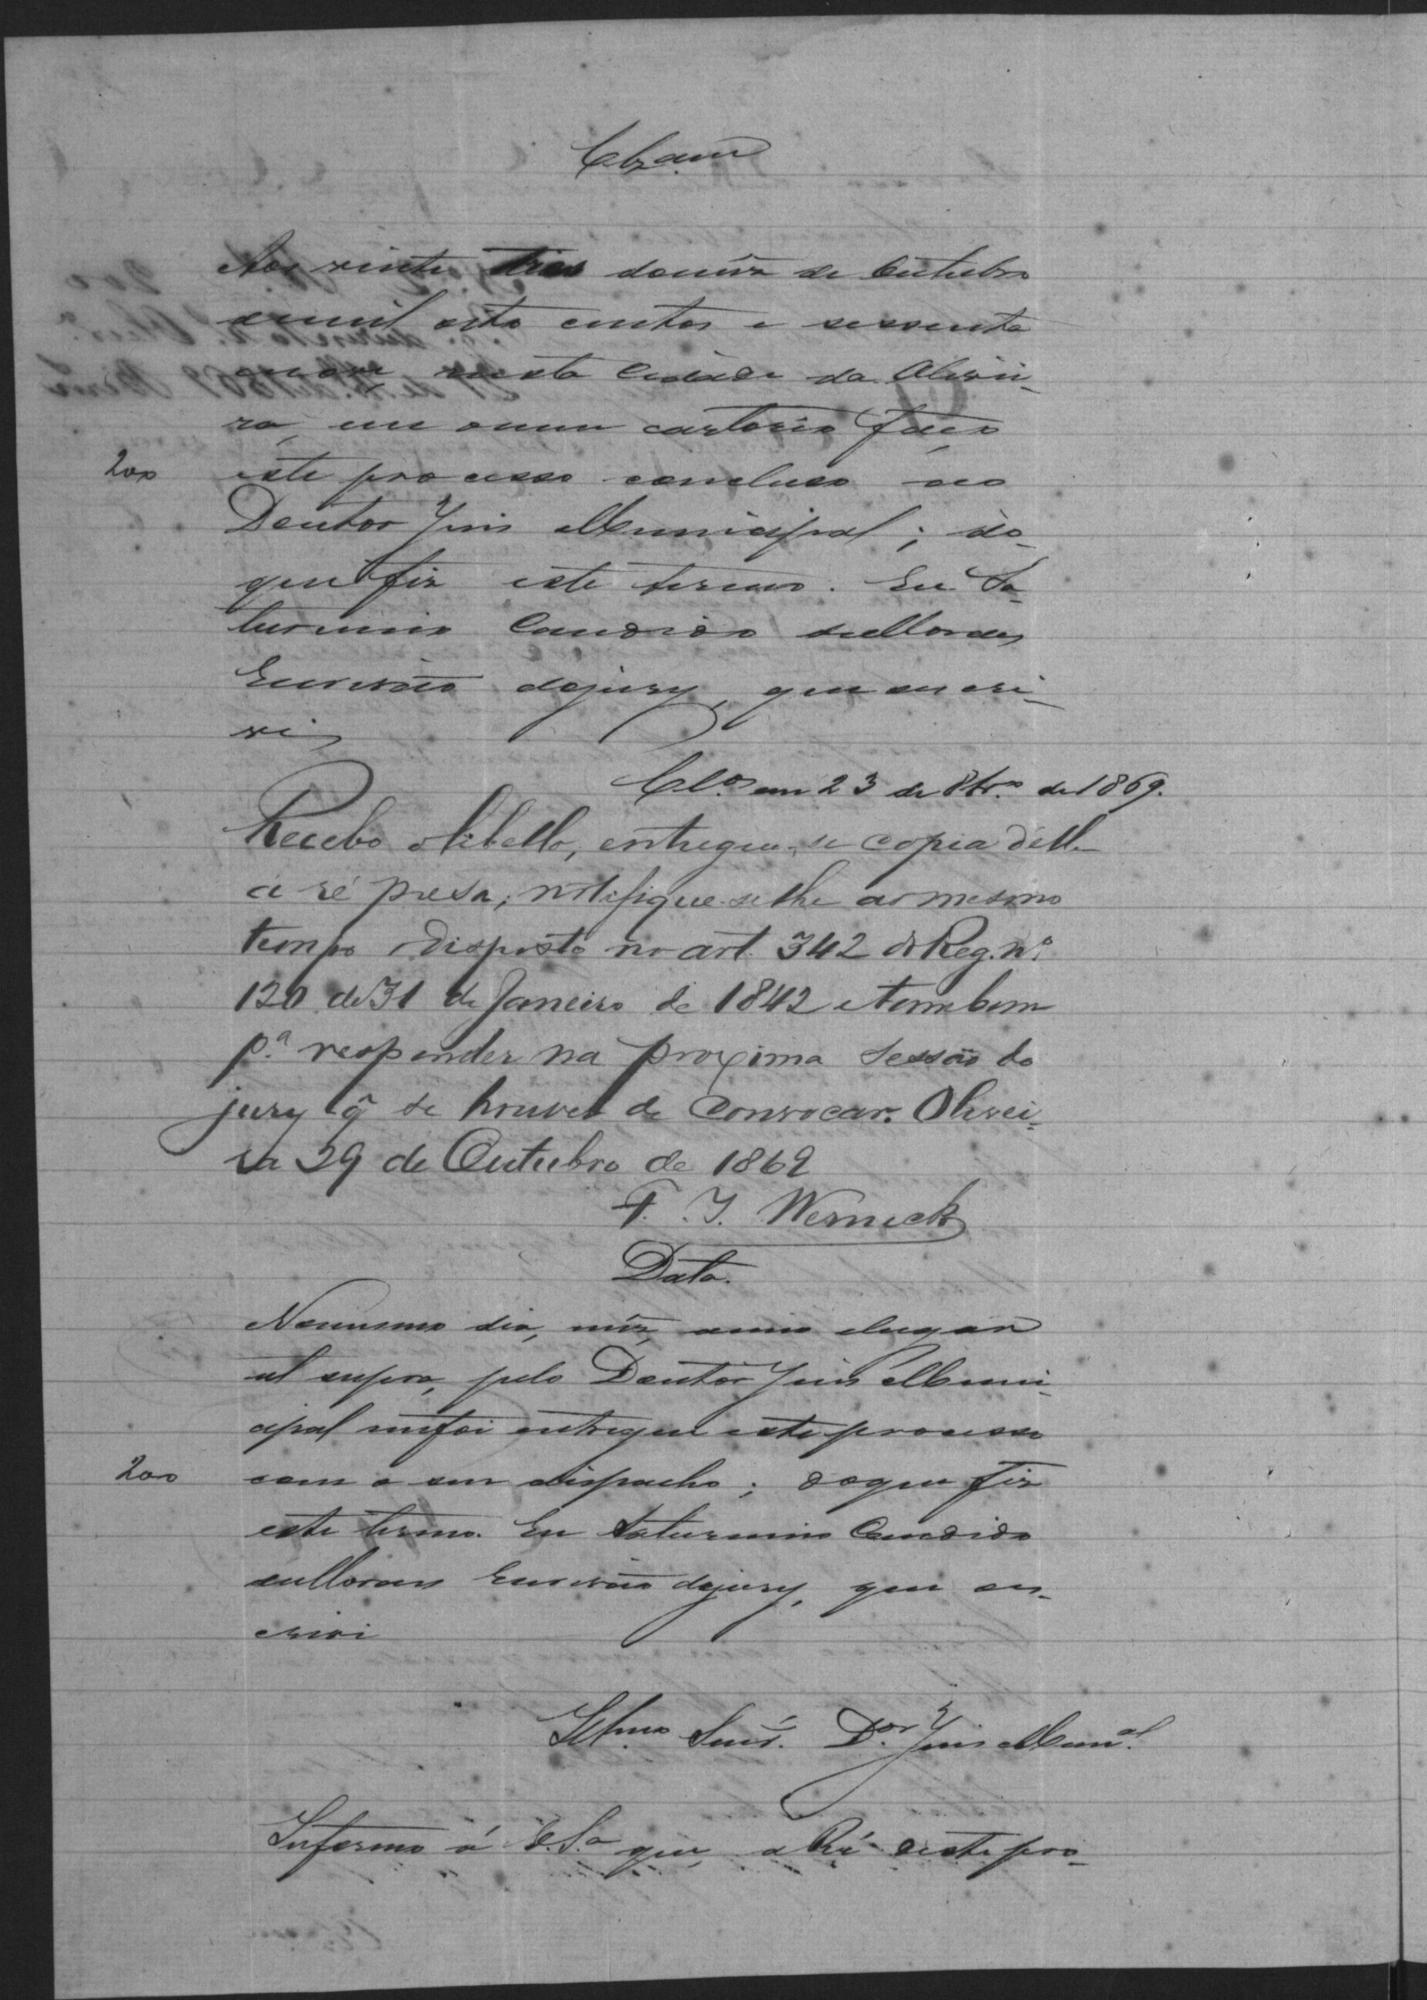 Clzam
Aos vinte tres domêz de Outubro
demil oito centos e sessenta
enove nesta Cidade da Olivei-
ra, em omeu cartorio faço
200 este processo concluso ao
Doutor Juis Municipal; do
que fiz este termo. Eu Sa-
turnino Candido deMoraes
Escrivão dojury, que escri-
vi
Cl.os em 23 de 8br.o de 1869.
Recebo olibello, entregue-se copia délle
a ré presa; notifique-se lhe ao mesmo
tempo odisposto no art. 342 do Reg. nº
120 de 31 de Janeiro de 1842 etambem
p.a responder na proxima sessão do
jury q̃ se houver de convocar. Olivei-
ra 29 de Outubro de 1869
F. J. Werneck
Data.
Nomesmo dia, mêz, anno elugar
ut supra, pelo Doutor Juis Muni-
cipal mefoi entregue esteprocesso
200 com o seu dispacho; doque fiz
este termo. Eu Saturnino Candido
deMoraes Escrivão dojury, que es-
crivi
Illmo Senr. D.or Juis Mun.al
Informo á V.S.a que, a Ré destepro-